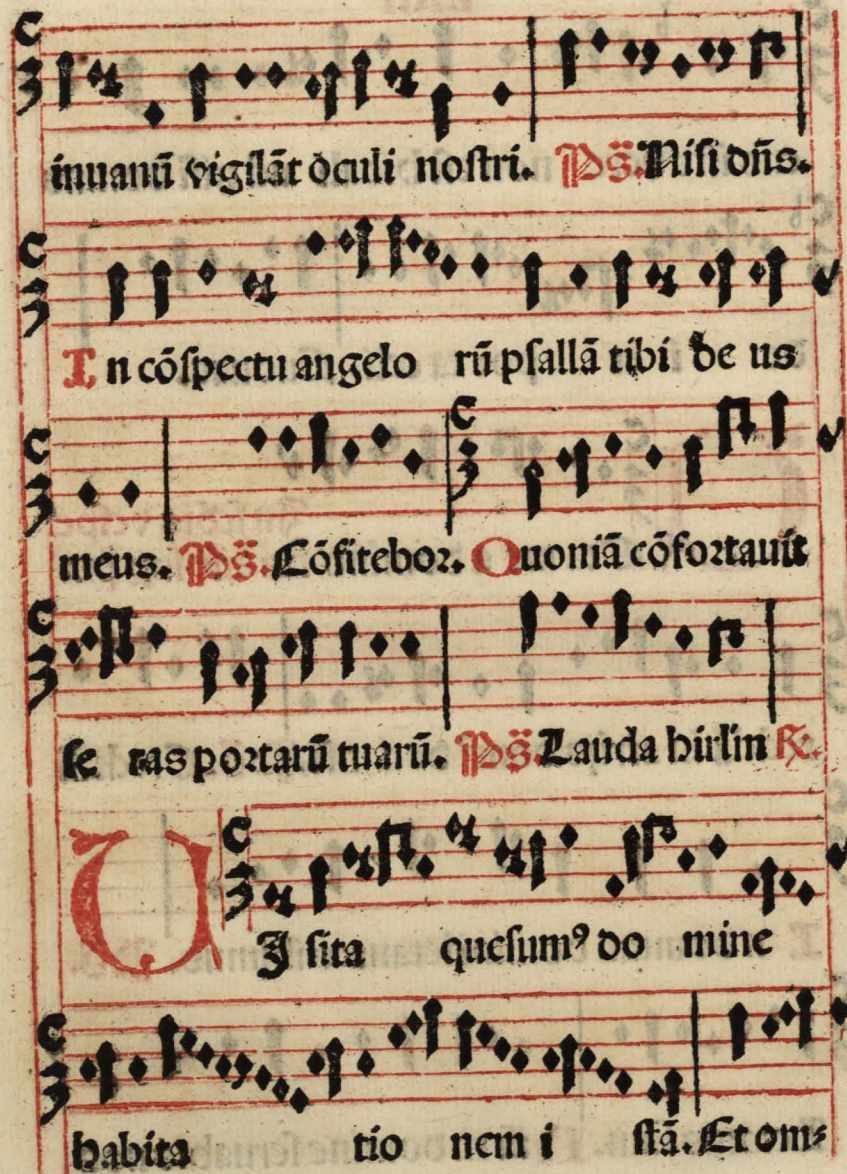 inuanū vigilāt oculi nostri. Ps̄. Nisi dn̄s.
In cōspectu angelo rū psallā tibi de us
meus. Ps̄. Cōfitebor. Quoniā cōfortauit
se ras portarū tuarū. Ps̄. Lauda hirl̄m ℟.
VJ sita quesumꝰ do mine
habita tio nem i stā. Et om⸗